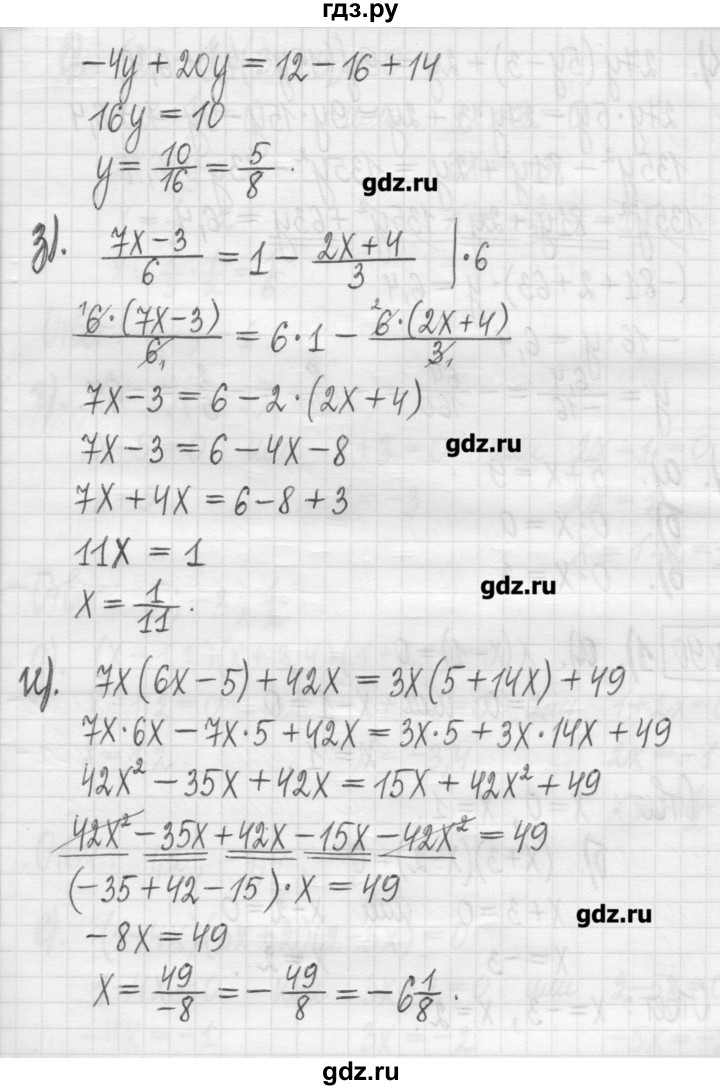 гдз.ру
-4y + 20y = 12 - 16 + 14
16y = 10
y = 10/16 = 5/8.
gdz.ru
з). (7x-3)/6 = 1 - (2x+4)/3 | ·6
¹6·(7x-3)/6₁ = 6·1 - ²6·(2x+4)/3₁
7x - 3 = 6 - 2·(2x+4)
gdz.ru
7x - 3 = 6 - 4x - 8
7x + 4x = 6 - 8 + 3
11x = 1
gdz.ru
x = 1/11.
и). 7x(6x-5) + 42x = 3x(5+14x) + 49
7x·6x - 7x·5 + 42x = 3x·5 + 3x·14x + 49
42x² - 35x + 42x = 15x + 42x² + 49
42x² - 35x + 42x - 15x - 42x² = 49
(-35 + 42 - 15)·x = 49
gdz.ru
-8x = 49
x = 49/-8 = -49/8 = -6 1/8.
gdz.ru